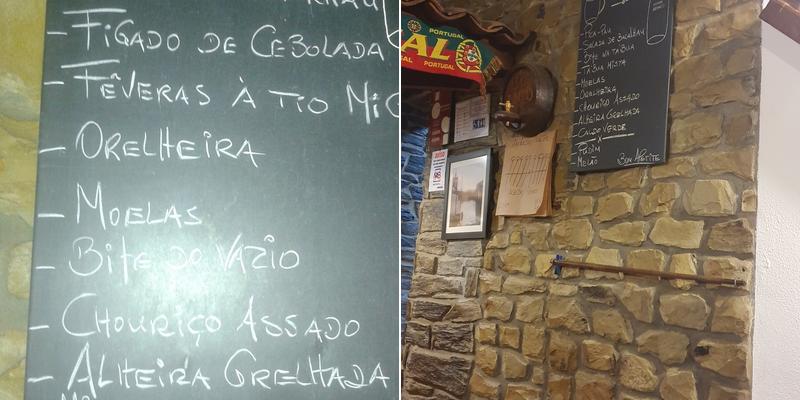 - FÍGADO DE CEBOLADA
- FÊVERAS À TIO MIG
- ORELHEIRA
- MOELAS
- BIFE DO VAZIO
- CHOURIÇO ASSADO
- ALHEIRA GRELHADA
PORTUGAL
AL
GAL PORTUGAL
- PICA-PAU
- SALADA DE BACALHAU
- BIFE NA TÁBUA
- TÁBUA MISTA
- MOELAS
- ORELHEIRA
- CHOURIÇO ASSADO
- ALHEIRA GRELHADA
- CALDO VERDE
x
- PUDIM
- MELÃO
BON APETITE